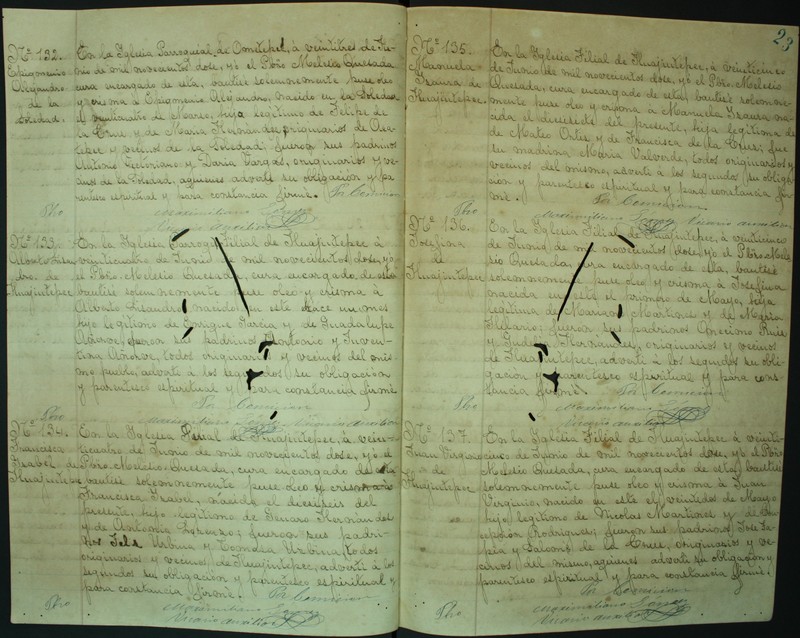 23
Nº 132.
Epigmenio
Alejandro
de la
Soledad.
En la Iglesia Parroquial de Ometepec, á veintitres de Ju-
nio de mil novecientos dose, yo el Pbro Melesio Quesada
cura encargado de esta, bautisé solemnemente puse oleo
y crisma á Epigmenio Alejandro, nacido en la Soledad
el veinticuatro de Marzo, hijo legítimo de Felipe de
la Cruz y de Maria Hernández, originarios de
y vecinos de la Soledad: fueron sus padrinos
Antonio y Daria Vargas, originarios y ve-
cinos de la Soledad, aquienes advertí su obligacion y pa-
rentesco espiritual y para constancia firmé. Por Comision
Pbro Maximiliano
Vicario auxiliar
Nº 133.
Alberto Lisan-
dro. de
Huajintepec
En la Iglesia Filial de Huajintepec á
veinticuatro de Junio de mil novecientos dose, yo
el Pbro. Melesio Quesada, cura encargado de esta
bautisé solemnemente puse oleo y crisma á
Alberto Lisandro, nacido en este hace un mes
hijo legítimo de Enrique Garcia y de Guadalupe
Añorve, fueron sus padrinos Antonio y Juven-
tina Añorve, todos originarios y vecinos del mis-
mo pueblo, advertí á los segundos su obligacion
y parentesco espiritual y para constancia firmé
Por Comision
Pbro Maximiliano
Vicario auxiliar
Nº 134.
Francisca
Isabel de
Huajintepec
En la Iglesia Filial de Huajintepec, á vein-
ticuatro de Junio de mil novecientos dose, yo el
Pbro. Melesio Quesada, cura encargado de esta
bautisé solemnemente puse oleo y crisma á
Francisca nacida el dieciseis del
presente, hija legítimo de Genaro Hernández
y de Antonia Lorenzo; fueron sus padri-
nos Urbina y Urbina, todos
originarios y vecinos, de Huajintepec, advertí á los
segundos su obligacion y parentesco espiritual y
para constancia firmé. Por Comision
Pbro Maximiliano
Vicario auxiliar
Nº 135.
Manuela
Isaura de
Huajintepec.
En la Iglesia Filial de Huajintepec, á veinticinco
de Junio de mil novecientos dose, yo el Pbro Melesio
Quesada, cura encargado de esta, bautisé solemne-
mente puse oleo y crisma á Manuela Isaura na-
cida el diecisiete del presente, hija legítima de
de Mateo Ortiz y de Francisca de la Cruz; fue
su madrina Maria Valverde, todos originarios y
vecinos del mismo, advertí á los segundos su obliga-
cion y parentesco espiritual y para constancia fir-
mé. Por Comision
Pbro Maximiliano
Vicario auxiliar
Nº 136.
Josefina
de
Huajintepec
En la Iglesia Filial de Huajintepec, á veinticinco
de Junio de mil novecientos dose, yo el Pbro Mele-
sio Quesada, cura encargado de esta, bautisé
solemnemente puse oleo y crisma á Josefina
nacida en este el primero de Mayo, hija
legítima de Mariano Martinez y de Maria
Hilario; fueron sus padrinos Ruiz
y Hernández, originarios y vecinos
de Huajintepec, advertí á los segundos su obli-
gacion y parentesco espiritual y para cons-
tancia firmé. Por Comision
Pbro Maximiliano
Vicario auxiliar
Nº 137.
Juan Virginio
de
Huajintepec
En la Iglesia Filial de Huajintepec á veinti-
cinco de Junio de mil novecientos dose, yo el Pbro
Melesio Quesada, cura encargado de esta, bautisé
solemnemente puse oleo y crisma á Juan
Virginio, nacido en este el veintidos de Mayo
hijo legítimo de Nicolas Martinez y de
Rodriguez; fueron sus padrinos José
y de la Cruz, originarios y ve-
cinos del mismo, aquienes advertí su obligacion y
parentesco espiritual y para constancia firmé.
Por Comision
Pbro Maximiliano
Vicario auxiliar